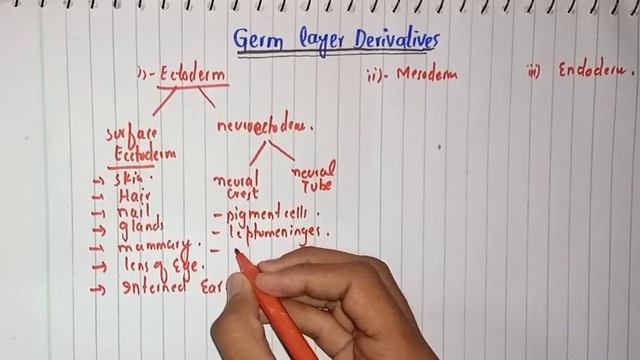 Germ layer Derivatives
i)- Ectoderm
ii)- Mesoderm
iii) Endoderm.
Surface
Ecctoderm
→ Skin.
→ Hair
→ nail
→ glands
→ mammary.
→ lens of Eye.
→ Ear
neuroectoderm.
neural
crest
- pigment cells.
- leptomeninges.
-
neural
Tube